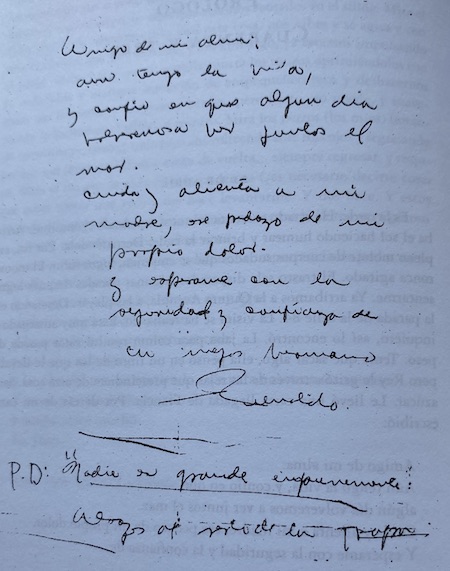 Amigo de mi alma;
aun tengo la vida,
y confio en que algun dia
volveremos a ver juntos el
mar.
cuida y alienta a mi
madre, ese pedazo de mi
propio dolor.
y esperame con la
seguridad y confianza de
tu mejor hermano
P.D: "Nadie es grande impunemente"
Abrazos al resto de la Tropa.